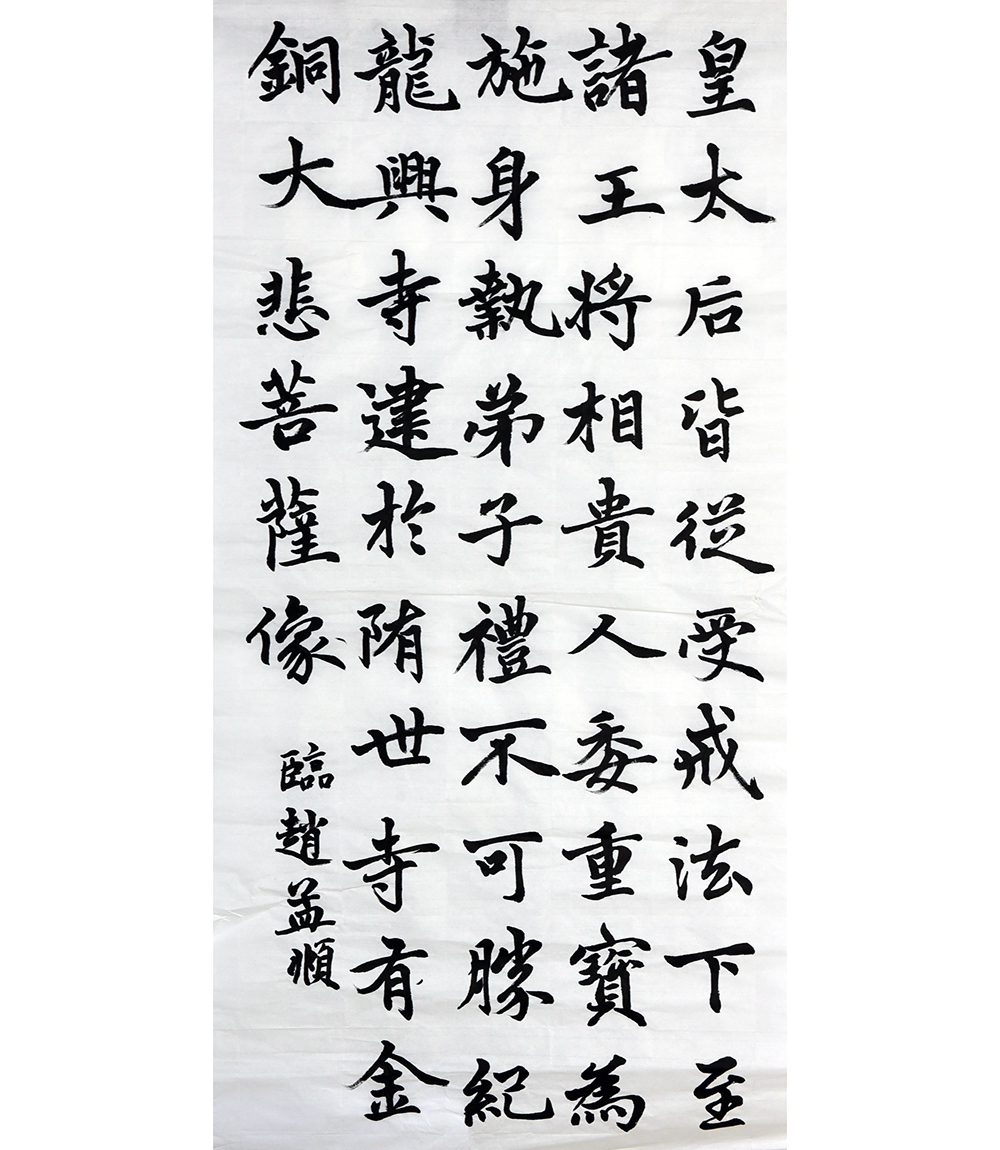 皇太后皆從受戒法下至
諸王將相貴人委重寶為
施身執弟子禮不可勝紀
龍興寺建於隋世寺有金
銅大悲菩薩像
臨趙孟順